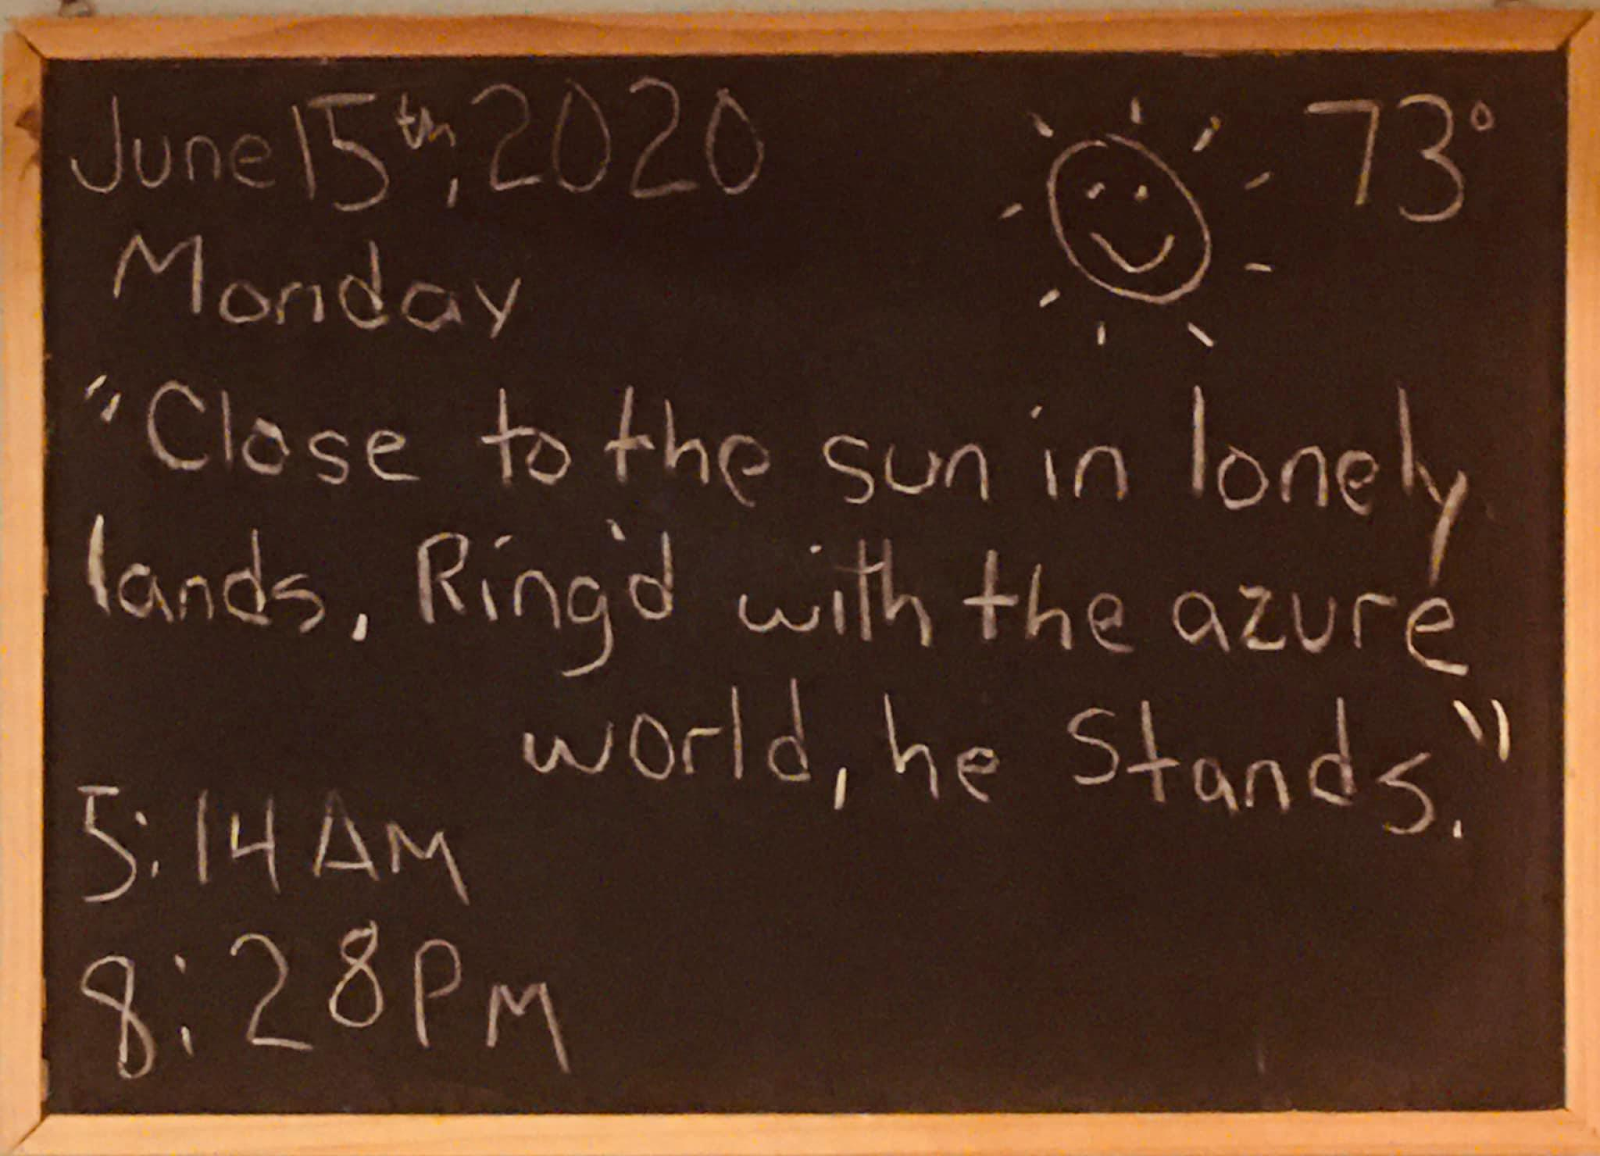 June 15th, 2020
73°
Monday
"Close to the sun in lonely
lands, Ring'd with the azure
world, he Stands."
5:14 AM
8:28 PM